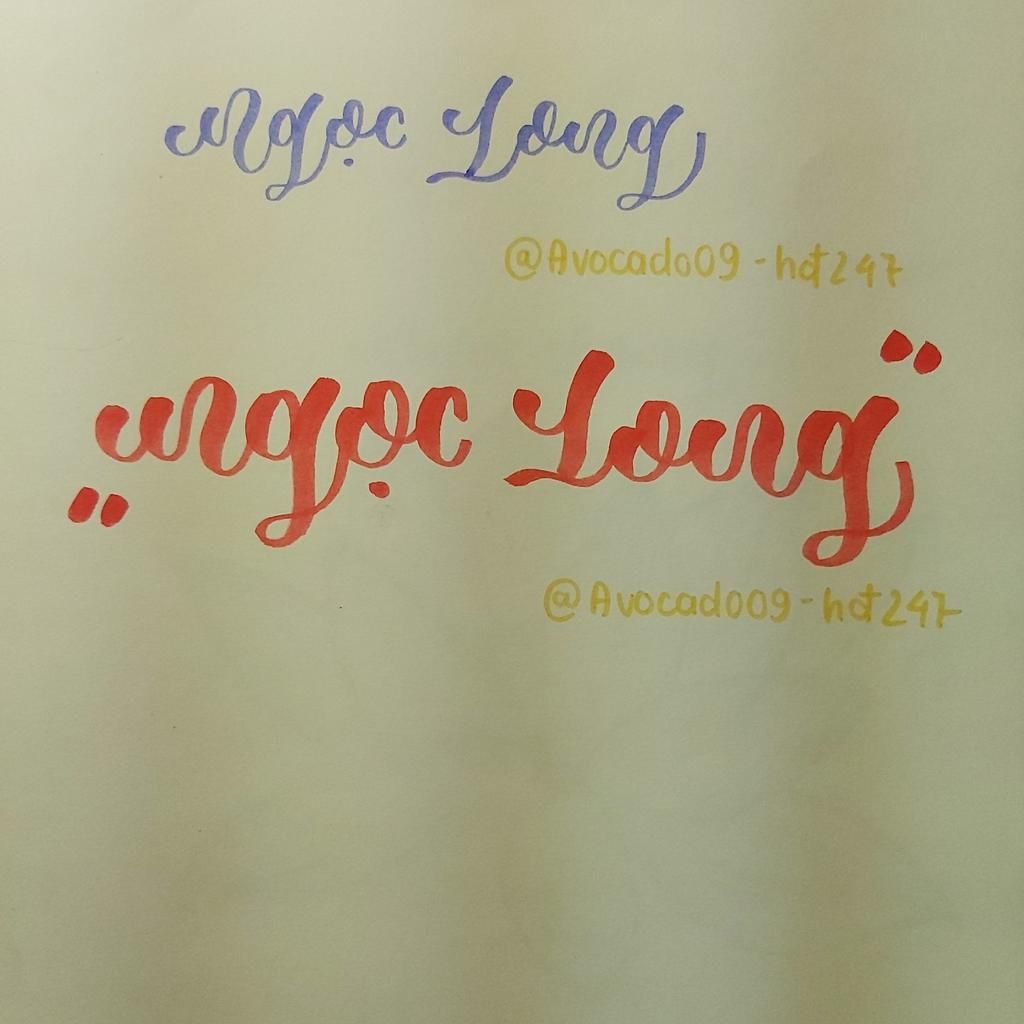 Ngọc Long
@Avocado09-hot247
"Ngọc Long"
@Avocado09-hot247